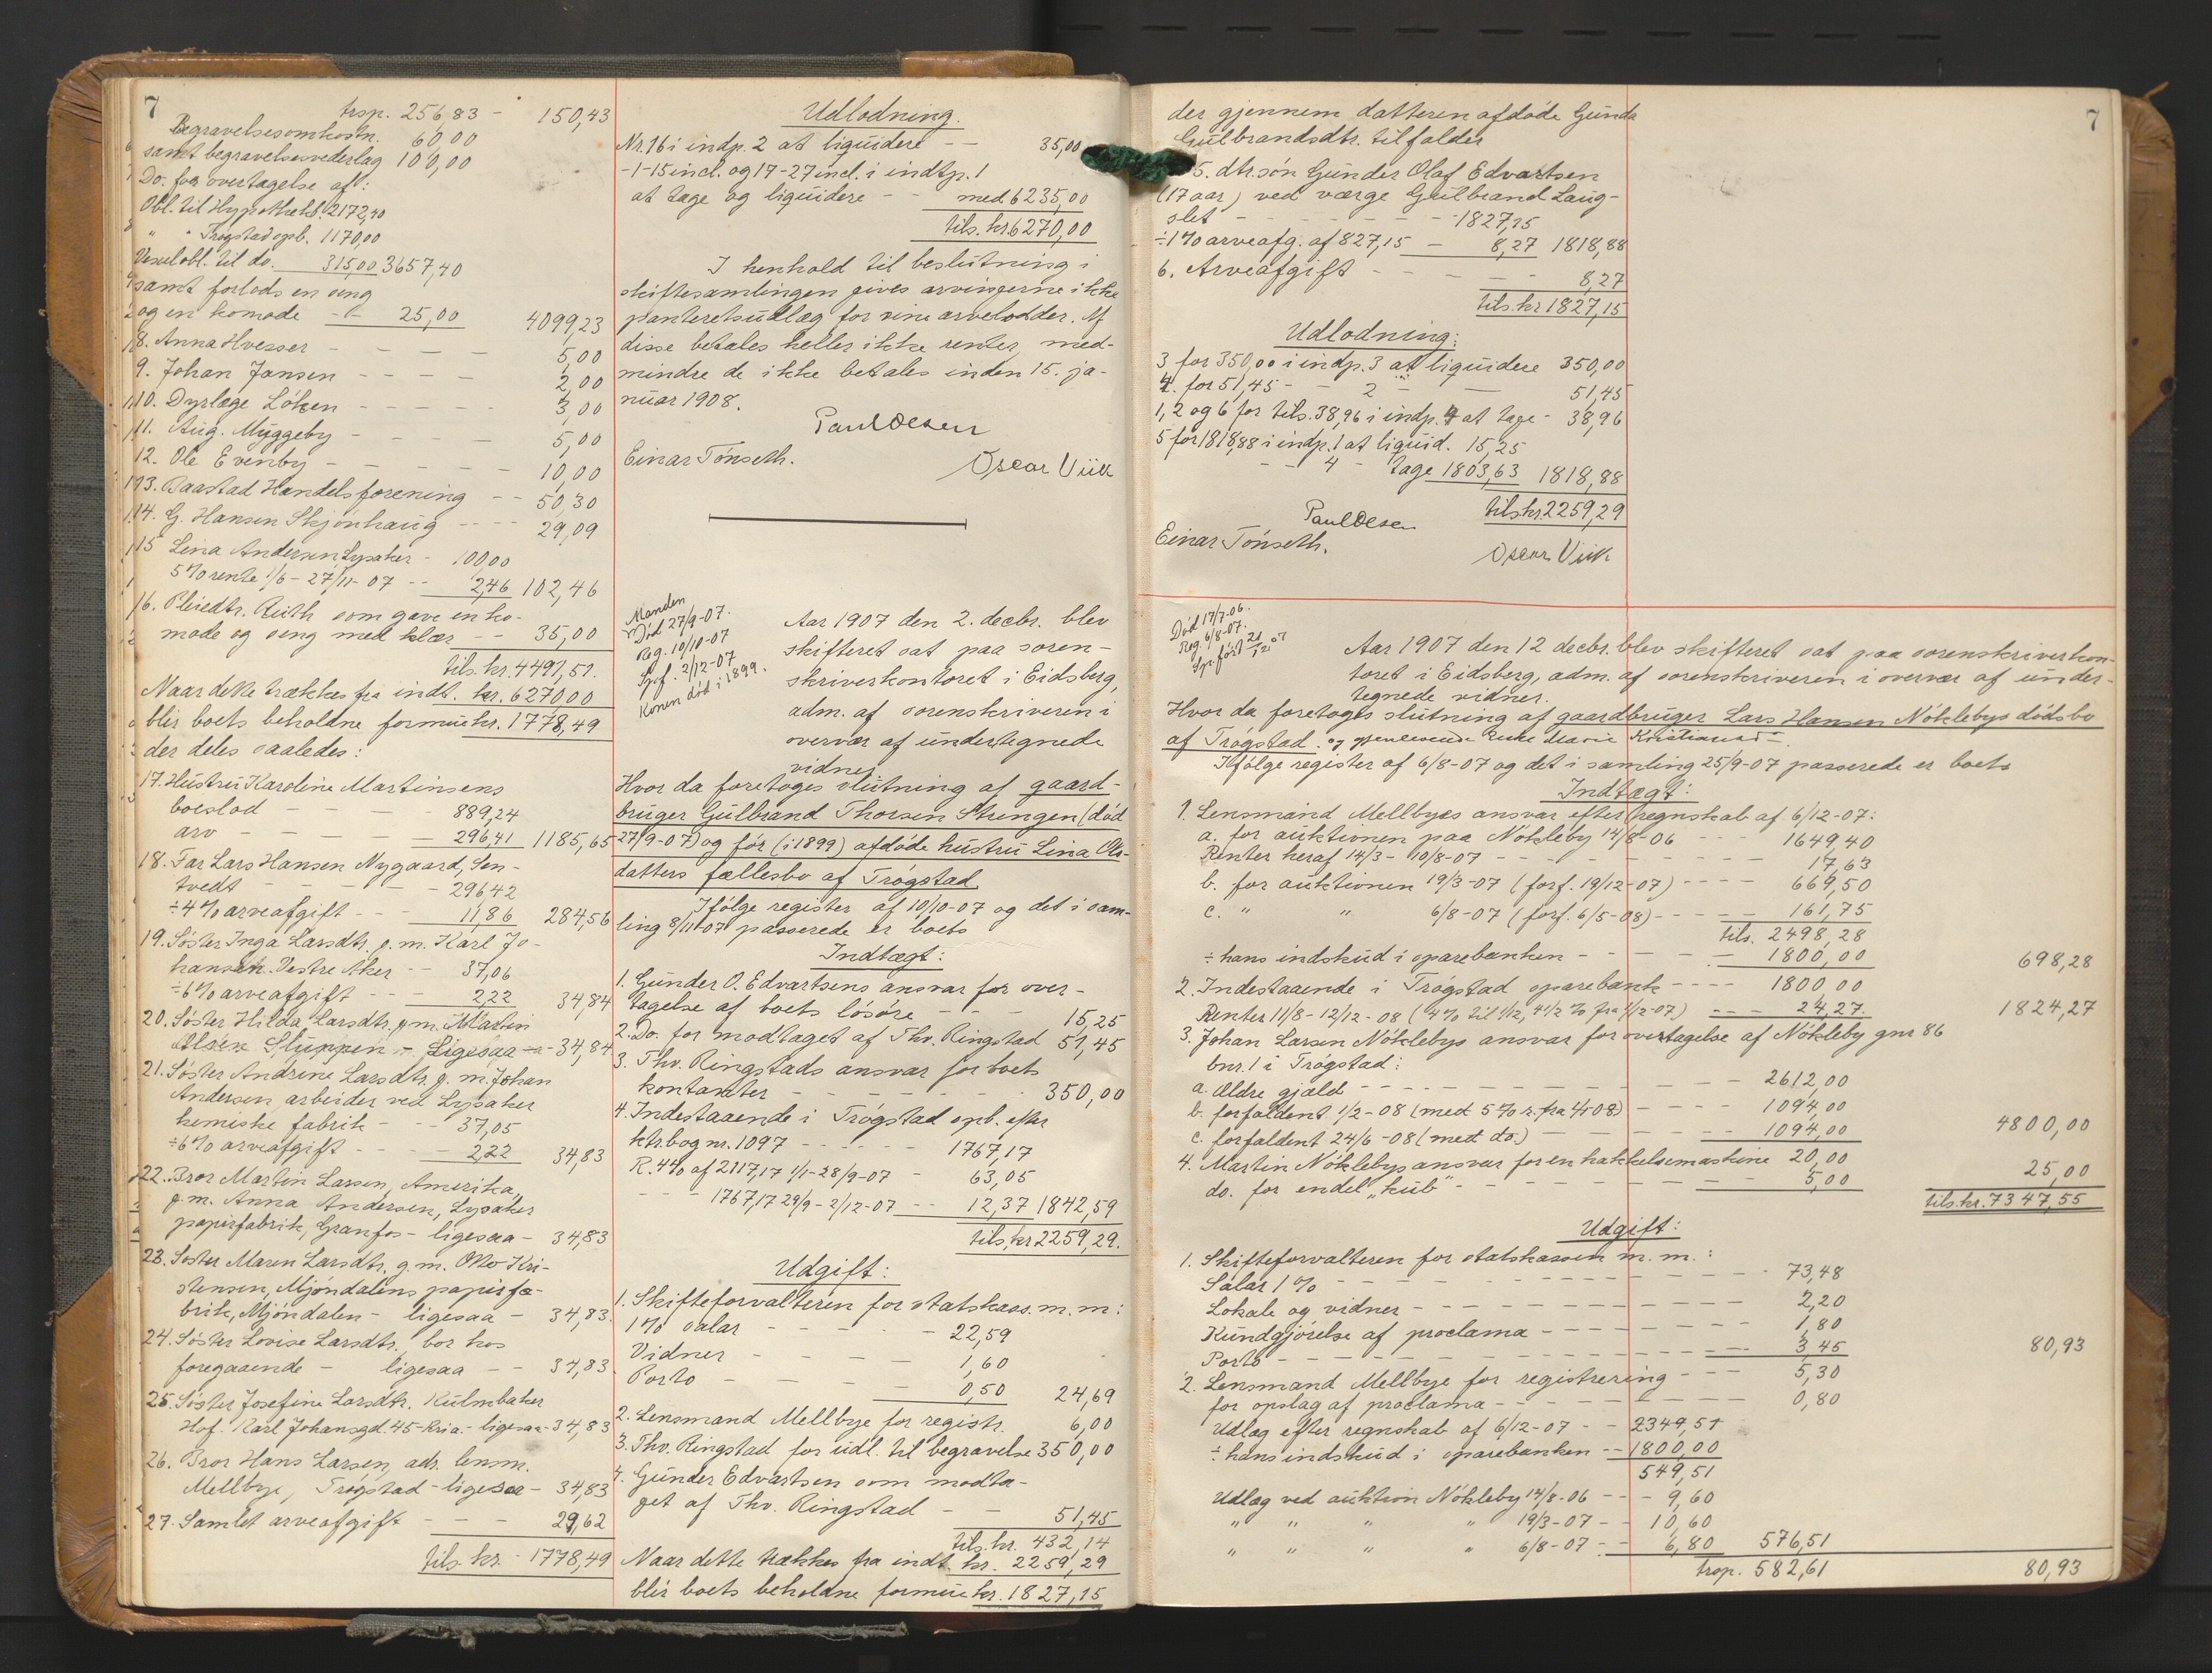 7
trsp. 256,83 - 150,43
Begravelsesomkostn. 60,00
samt begravelsesvederlag 100,00
Do. for overtagelse af:
Obl. til Hypothekb. 2172,40
" " Trøgstad spb. 1170,00
Vexelobl. til do. 315,00 3657,40
samt forlods en seng
og en komode - - 25,00 4099,23
8. Anna Hvesser - - - - 5,00
9. Johan Jansen - - - - 2,00
10. Dyrlæge Löken - - - - 3,00
11. Aug. Myggeby - - - - 5,00
12. Ole Evenby - - - - - 10,00
13. Baastad Handelsforening - - 50,30
14. G. Hansen Skjönhaug - - - 29,09
15 Lina Andersen Lysaker - 100,00
5% rente 1/6 - 27/11-07 - - 2,46 102,46
16. Pleiedtr. Ruth som gave en ko-
mode og seng med klær - - 35,00
tils. kr. 4491,51.
Naar dette trækkes fra indt. kr. 6270,00
blir boets beholdne formue kr. 1778,49
der deles saaledes:
17. Hustru Karoline Martinsens
boeslod - - - 889,24
arv - - - - 296,41 1185,65
18. Far Lars Hansen Nygaard, Sen-
tvedt - - - - 296,42
÷ 4% arveafgift - - 11,86 284,56
19. Söster Inga Larsdtr. g. m. Karl Jo-
hansen. Vestre Aker - - 37,06
÷ 6% arveafgift - - 2,22 34,84
20. Söster Hilda Larsdtr. g m. Martin
Olsen Sluppen - Ligesaa - 34,84
21. Söster Andrine Larsdtr. g. m. Johan
Andersen, arbeider ved Lysaker
kemiske fabrik - - 37,05
÷ 6% arveafgift - - - 2,22 34,83
22. Bror Martin Larsen, Amerika,
g. m. Anna Andersen, Lysaker
papirfabrik, Granfos - ligesaa - 34,83
23. Söster Maren Larsdtr. g. m. Otto Kri-
stensen, Mjöndalens papirfa-
brik, Mjöndalen - ligesaa - 34,83.
24. Söster Lovise Larsdtr. bor hos
foregaaende - ligesaa - - 34,83
25. Söster Josefine Larsdtr. Kulmbaker
Hof. Karl Johansgd. 45 - Kria - ligesaa - 34,83
26. Bror Hans Larsen, adr. lensm.
Mellbye, Trøgstad - ligesaa - 34,83
27. Samlet arveafgift - - - 29,62
tils. kr. - 1778,49
Udlodning.
Nr. 16 i indp. 2 at liquidere - - 35,00
- 1-15 incl. og 17-27 incl. i indtp. 1
at tage og liquidere - - med 6235,00
tils. kr. 6270,00
I henhold til beslutning i
skiftesamlingen gives arvingerne ikke
panteretsudlæg for sine arvelodder. Af
disse betales heller ikke renter, med-
mindre de ikke betales inden 15. ja-
nuar 1908.
Paul Oesen
Einar Tönseth.
Oscar Viik
Manden
Död 27/9-07.
Reg. 10/10-07
Spf. 2/12-07
Konen död i 1899.
Aar 1907 den 2. decbr. blev
skifteret sat paa soren-
skriverkontoret i Eidsberg,
adm. af sorenskriveren i
overvær af undertegnede
vidner
Hvor da foretoges slutning af gaard-
bruger Gulbrand Thorsen Strengen (död
27/9-07) og för (i 1899) afdöde hustru Lina Ols-
datters fællesbo af Trøgstad.
Ifölge register af 10/10-07 og det i sam-
ling 8/11-07 passerede er boets
Indtægt:
1. Gunder O. Edvartsens ansvar for over-
tagelse af boets lösöre - - - 15,25
2. Do. for modtaget af Thv. Ringstad 51,45
3. Thv. Ringstads ansvar for boets
kontanter - - - - - - 350,00
4. Indestaaende i Trøgstad spb. efter
ktrbog nr. 1097 - - - - 1767,17
R. 4% af 2117,17 1/1-28/9-07 - 63,05
- - - 1767,17 29/9 - 2/12-07 - - 12,37 1842,59
tils. kr 2259,29.
Udgift:
1. Skifteforvalteren for statskass. m. m:
1% salar - - - - 22,59
Vidner - - - - 1,60
Porto - - - - 0,50 24,69
2. Lensmand Mellbye for registr. 6,00
3. Thv. Ringstad for udl. til begravelse 350,00
4. Gunder Edvartsen som modta-
get af Thv. Ringstad - - 51,45
tils. kr. 432,14
Naar dette trækkes fra indt. kr. 2259,29
blir boets beholdne formue kr. 1827,15
7
der gjennem datteren afdöde Gunda
Gulbrandsdtr. tilfalder
5. dtrsön Gunder Olaf Edvartsen
(17 aar) ved værge Gulbrand Laug-
slet - - - - - - - 1827,15
÷ 1% arveafg. af 827,15 - 8,27 1818,88
6. Arveafgift - - - - - 8,27
tils. kr 1827,15
Udlodning:
3 for 350,00 i indp. 3 at liquidere 350,00
4. for 51,45 - - 2 " - 51,45
1, 2 og 6 for tils. 38,96 i indp. 4 at tage - 38,96
5 for 1818,88 i indp. 1 at liquid. 15,25
- - 4 - tage 1803,63 1818,88
tils. kr. 2259,29
Paul Oesen
Einar Tönseth.
Oscar Viik
Död 17/7-06.
Reg. 6/8-07.
Aar 1907 den 12 decbr. blev skifteret sat paa sorenskriverkon-
toret i Eidsberg, adm. af sorenskriveren i overvær af under-
tegnede vidner.
Hvor da foretoges slutning af gaardbruger Lars Hansen Nöklebys dödsbo
af Trøgstad. og gjenlevende Enke Marie Kristiansd -.
Ifölge register af 6/8-07 og det i samling 25/9-07 passerede er boets
Indtægt:
1. Lensmand Mellbyes ansvar efter regnskab af 6/12-07:
a. for auktionen paa Nökleby 14/8-06 - - - 1649,40
Renter heraf 14/3 - 10/8-07 - - - - - 17,63
b. for auktionen 19/3-07 (forf. 19/12-07) - - - - 669,50
c. " " 6/8-07 (forf. 6/5-08) - - - - - 161,75
tils. 2498,28
÷ hans indskud i sparebanken - - - - - 1800,00 698,28
2. Indestaaende i Trøgstad sparebank - - - - 1800,00
Renter 11/8 - 12/12-08 (4% til 1/12, 4 1/2 % fra 1/12-07) - - - 24,27. 1824,27
3. Johan Larsen Nöklebys ansvar for overtagelse af Nökleby gnr 86
bnr. 1 i Trøgstad:
a. Ældre gjæld - - - - - - - - 2612,00
b. forfaldent 1/2-08 (med 5% r. fra 1/1 08) - - - - 1094,00
c. forfaldent 24/6-08 (med do.) - - - - - 1094,00 4800,00
4. Martin Nöklebys ansvar for en hakkelsemaskine 20,00
do. for endel "kub" - - - - - - - - 5,00 25,00
tils. kr. 7347,55
Udgift:
1. Skifteforvalteren for statskassen m. m.:
Salar 1% - - - - - - - - - - 73,48
Lokale og vidner - - - - - - - - - 2,20
Kundgjörelse af proclama - - - - - - - 1,80
Porto - - - - - - - - - - - - 3,45 80,93
2. Lensmand Mellbye for registrering - - - 5,30
for opslag af proclama - - - - - - - - 0,80
Udlæg efter regnskab af 6/12-07 - - 2349,51
÷ hans indskud i sparebanken - - 1800,00
549,51
Udlæg ved auktion Nökleby 14/8-06 - - - 9,60
" " " " 19/3-07 - - 10,60
" " " " 6/8-07 - - 6,80 576,51
trsp. 582,61 80,93